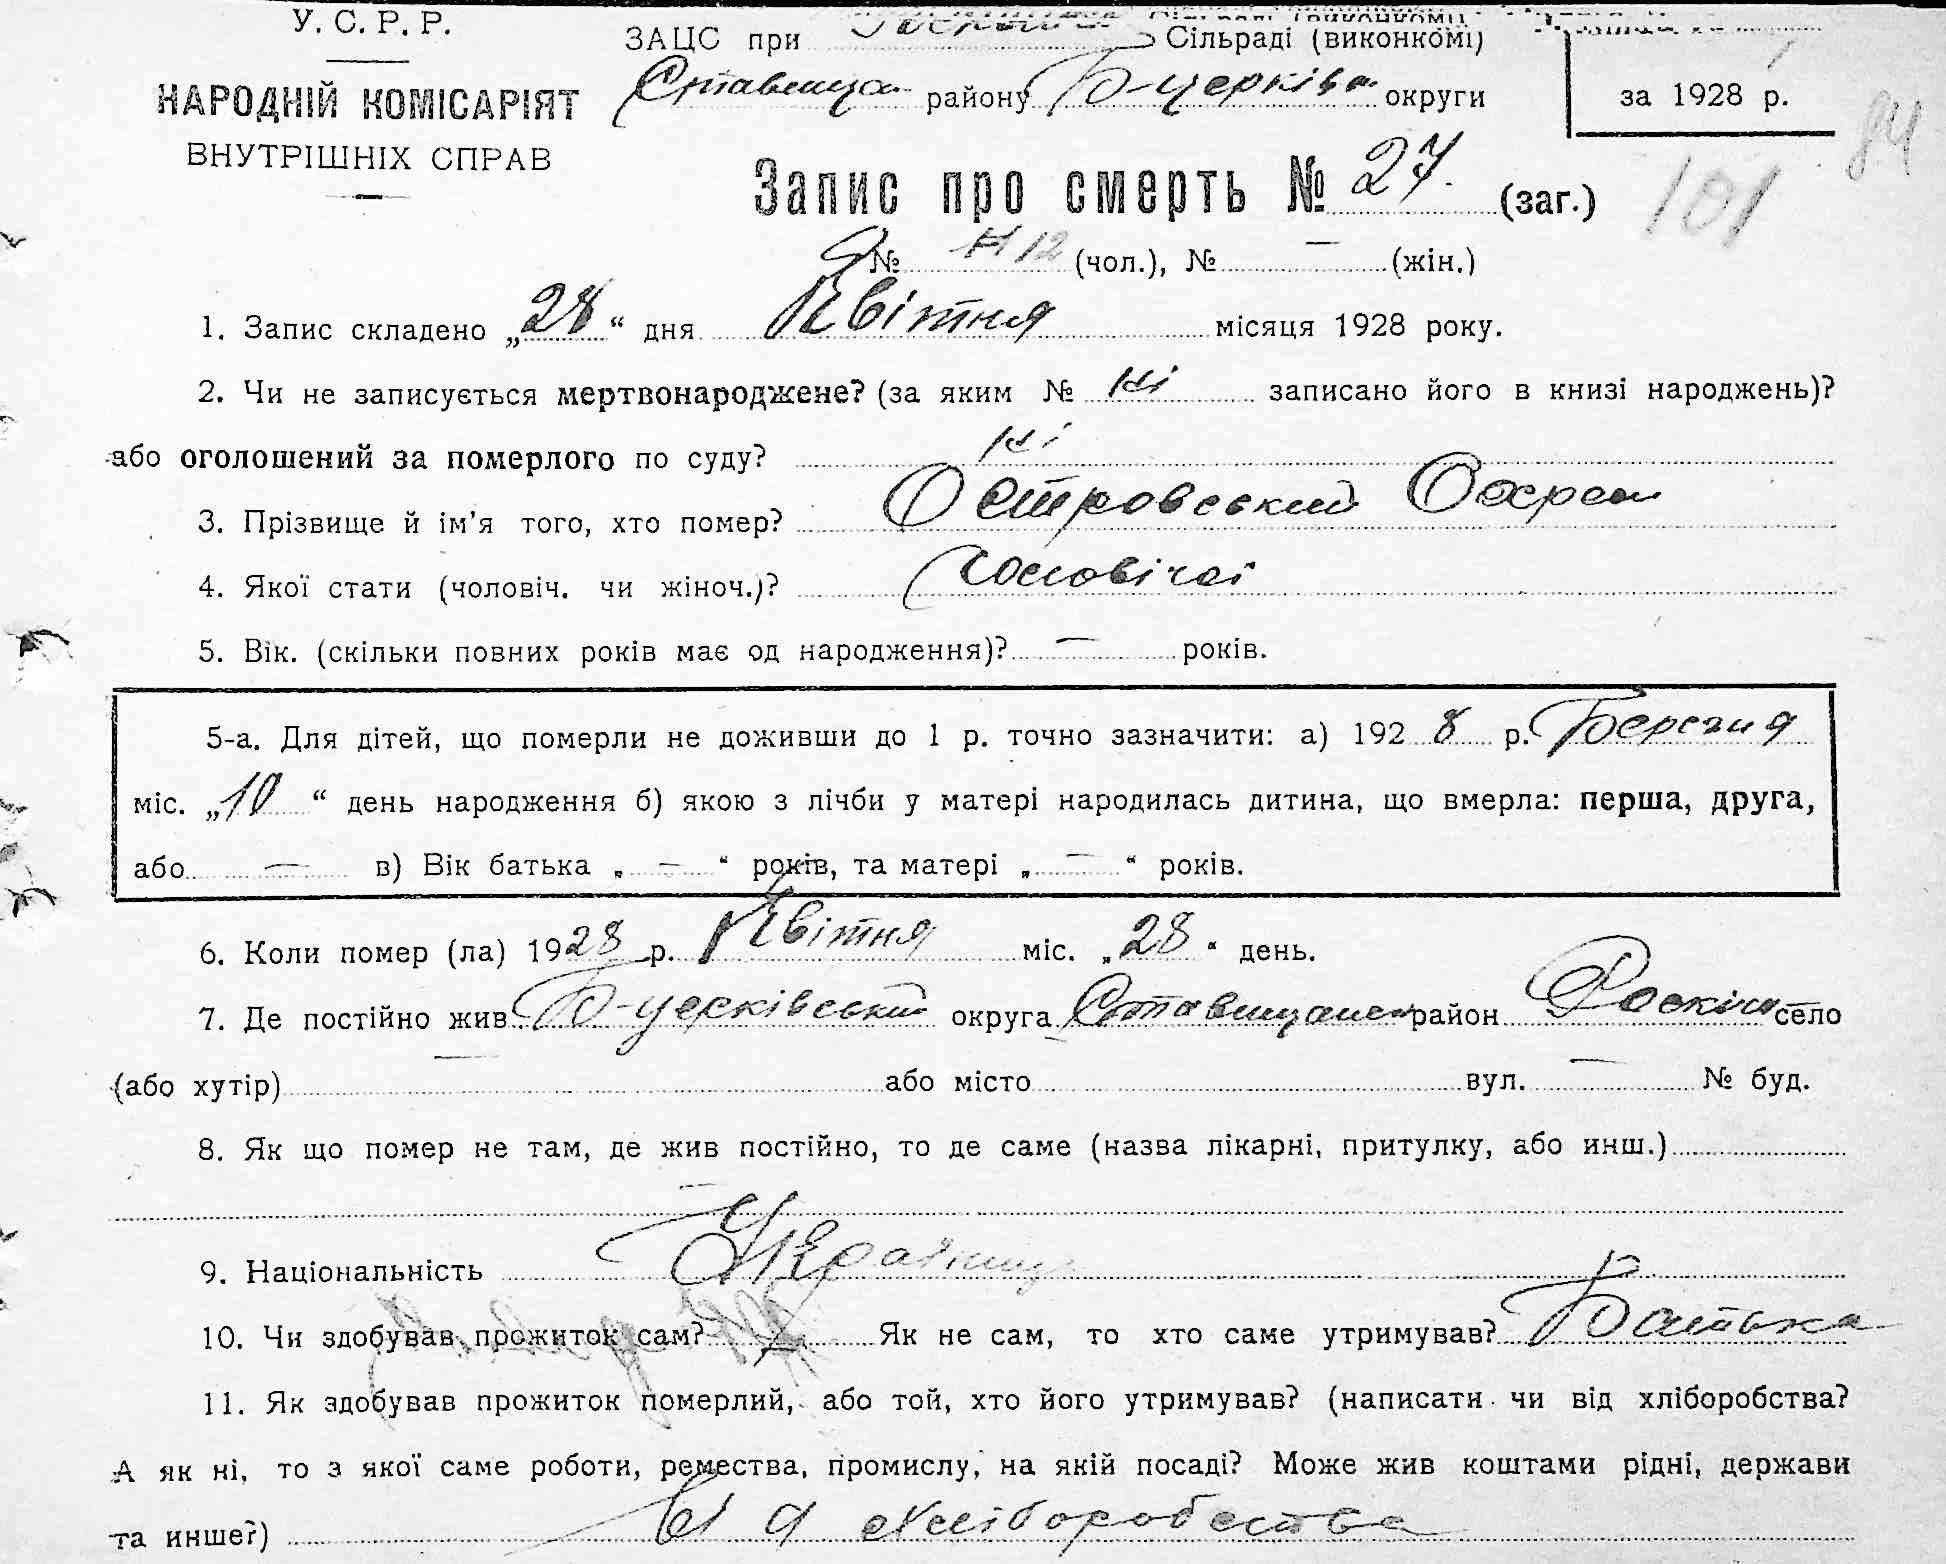 У. С. Р. Р.
НАРОДНІЙ КОМІСАРІЯТ
ВНУТРІШНІХ СПРАВ
ЗАЦС при Сільраді (виконкомі)
Ставищан району Б-церків округи
за 1928 р.
84
101
Запис про смерть № 27. (заг.)
№ 12 (чол.), № — (жін.)
1. Запис складено „28“ дня Квітня місяця 1928 року.
2. Чи не записується мертвонароджене? (за яким № ні записано його в книзі народжень)?
або оголошений за померлого по суду? ні
3. Прізвище й ім’я того, хто помер? Островський Охрем
4. Якої стати (чоловіч. чи жіноч.)? Чоловічої
5. Вік. (скільки повних років має од народження)? — років.
5-а. Для дітей, що померли не доживши до 1 р. точно зазначити: а) 1928 р. Березня
міс. „10“ день народження б) якою з лічби у матері народилась дитина, що вмерла: перша, друга,
або — в) Вік батька „—“ років, та матері „—“ років.
6. Коли помер (ла) 1928 р. Квітня міс. „28“ день.
7. Де постійно жив Б-церківський округа Ставищанськ район Роскішна село
(або хутір) — або місто вул. — № буд.
8. Як що помер не там, де жив постійно, то де саме (назва лікарні, притулку, або инш.)
—
9. Національність Українец
10. Чи здобував прожиток сам? Як не сам, то хто саме утримував? Батько
11. Як здобував прожиток померлий, або той, хто його утримував? (написати чи від хліборобства?
А як ні, то з якої саме роботи, ремества, промислу, на якій посаді? Може жив коштами рідні, держави
та инше?) Від хліборобства